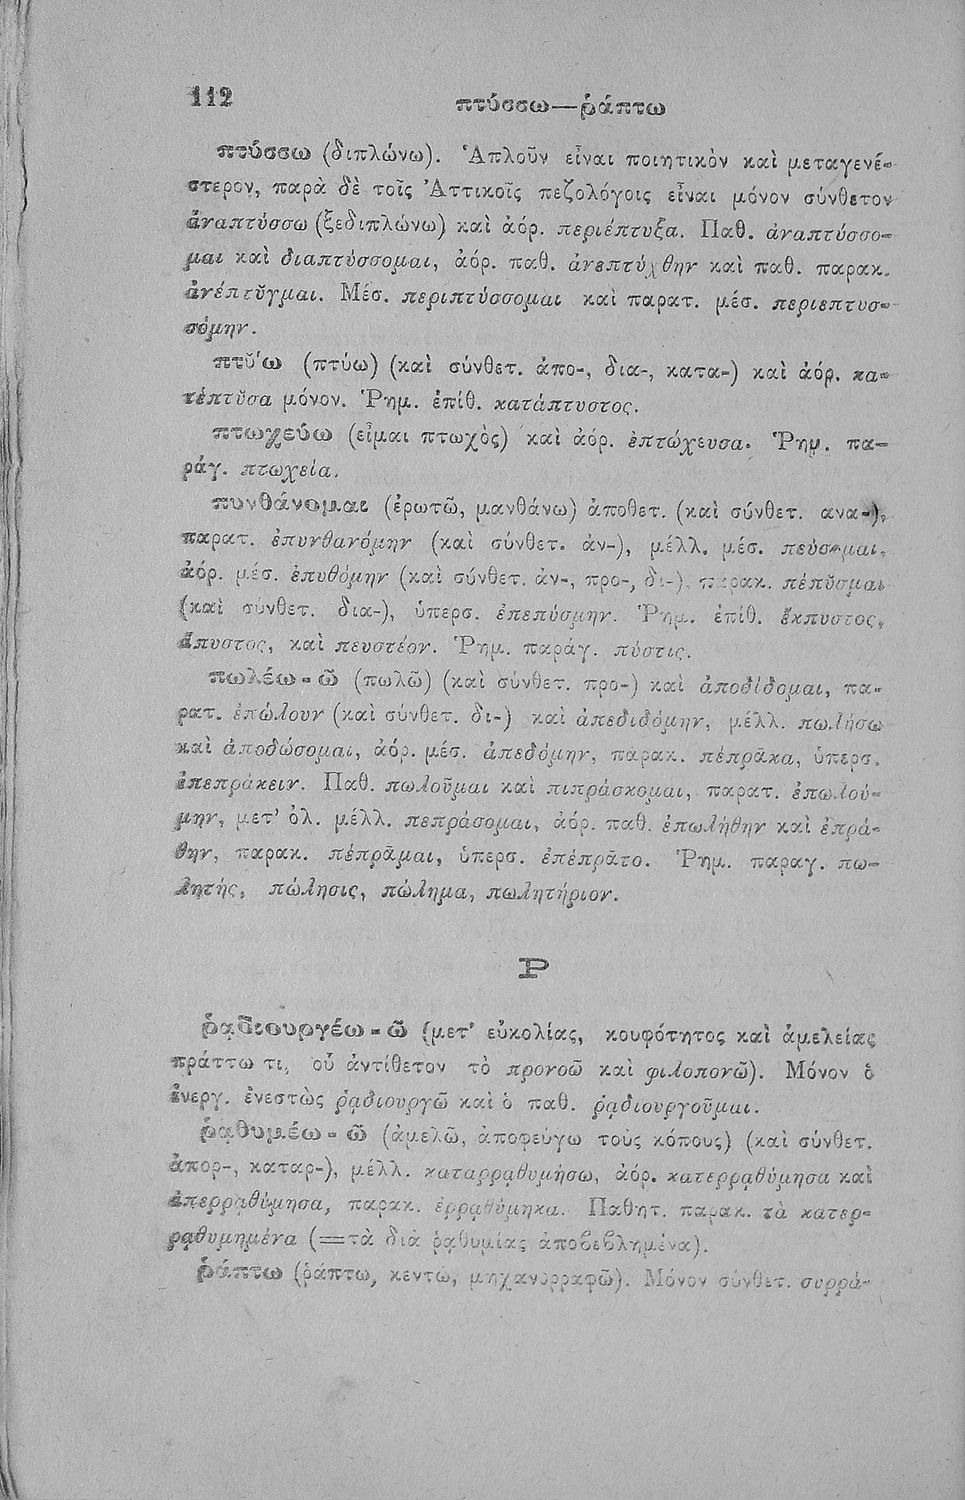 112
πτύσσω—ῥάπτω
πτύσσω (διπλώνω). Ἁπλοῦν εἶναι ποιητικὸν καὶ μεταγενέ-
στερον, παρὰ δὲ τοῖς Ἀττικοῖς πεζολόγοις εἶναι μόνον σύνθετον
ἀναπτύσσω (ξεδιπλώνω) καὶ ἀόρ. περιέπτυξα. Παθ. ἀναπτύσσο-
μαι καὶ διαπτύσσομαι, ἀόρ. παθ. ἀνεπτύχθην καὶ παθ. παρακ.
ἀνέπτῦγμαι. Μέσ. περιπτύσσομαι καὶ παρατ. μέσ. περιεπτυσ-
σόμην.
πτῡ́ω (πτύω) (καὶ σύνθετ. ἀπο-, δια-, κατα-) καὶ ἀόρ. κα-
τέπτῠσα μόνον. Ῥημ. ἐπίθ. κατάπτυστος.
πτωχεύω (εἶμαι πτωχὸς) καὶ ἀόρ. ἐπτώχευσα. Ῥημ. πα-
ράγ. πτωχεία.
πυνθάνομαι (ἐρωτῶ, μανθάνω) ἀποθετ. (καὶ σύνθετ. ανα-),
παρατ. ἐπυνθανόμην (καὶ σύνθετ. ἀν-), μέλλ. μέσ. πεύσομαι,
ἀόρ. μέσ. ἐπυθόμην (καὶ σύνθετ. ἀν-, προ-, δι-), παρακ. πέπῠσμαι
(καὶ σύνθετ. δια-), ὑπερσ. ἐπεπύσμην. Ῥημ. ἐπίθ. ἔκπυστος,
ἄπυστος, καὶ πευστέον. Ῥημ. παράγ. πύστις.
πωλέω-ῶ (πωλῶ) (καὶ σύνθετ. προ-) καὶ ἀποδίδομαι, πα-
ρατ. ἐπώλουν (καὶ σύνθετ. δι-) καὶ ἀπεδιδόμην, μέλλ. πωλήσω
καὶ ἀποδώσομαι, ἀόρ. μέσ. ἀπεδόμην, παρακ. πέπρᾱκα, ὑπερσ.
ἐπεπράκειν. Παθ. πωλοῦμαι καὶ πιπράσκομαι, παρατ. ἐπωλού-
μην, μετ' ὀλ. μέλλ. πεπράσομαι, ἀόρ. παθ. ἐπωλήθην καὶ ἐπρά-
θην, παρακ. πέπρᾱμαι, ὑπερσ. ἐπέπρᾱτο. Ῥημ. παραγ. πω-
λητής, πώλησις, πώλημα, πωλητήριον.
Ρ
ῥᾳδιουργέω-ῶ (μετ' εὐκολίας, κουφότητος καὶ ἀμελείας
πράττω τι, οὗ ἀντίθετον τὸ προνοῶ καὶ φιλοπονῶ). Μόνον ὁ
ἐνεργ. ἐνεστὼς ῥᾳδιουργῶ καὶ ὁ παθ. ῥᾳδιουργοῦμαι.
ῥᾳθυμέω-ῶ (ἀμελῶ, ἀποφεύγω τοὺς κόπους) (καὶ σύνθετ.
ἀπορ-, καταρ-), μέλλ. καταρρᾳθυμήσω, ἀόρ. κατερρᾳθύμησα καὶ
ἀπερρᾳθύμησα, παρακ. ἐρρᾳθύμηκα. Παθητ. παρακ. τὰ κατερ-
ρᾳθυμημένα (=τὰ διὰ ῥᾳθυμίας ἀποβεβλημένα).
ῥάπτω (ῥάπτω, κεντῶ, μηχανορραφῶ). Μόνον σύνθετ. συρρά-